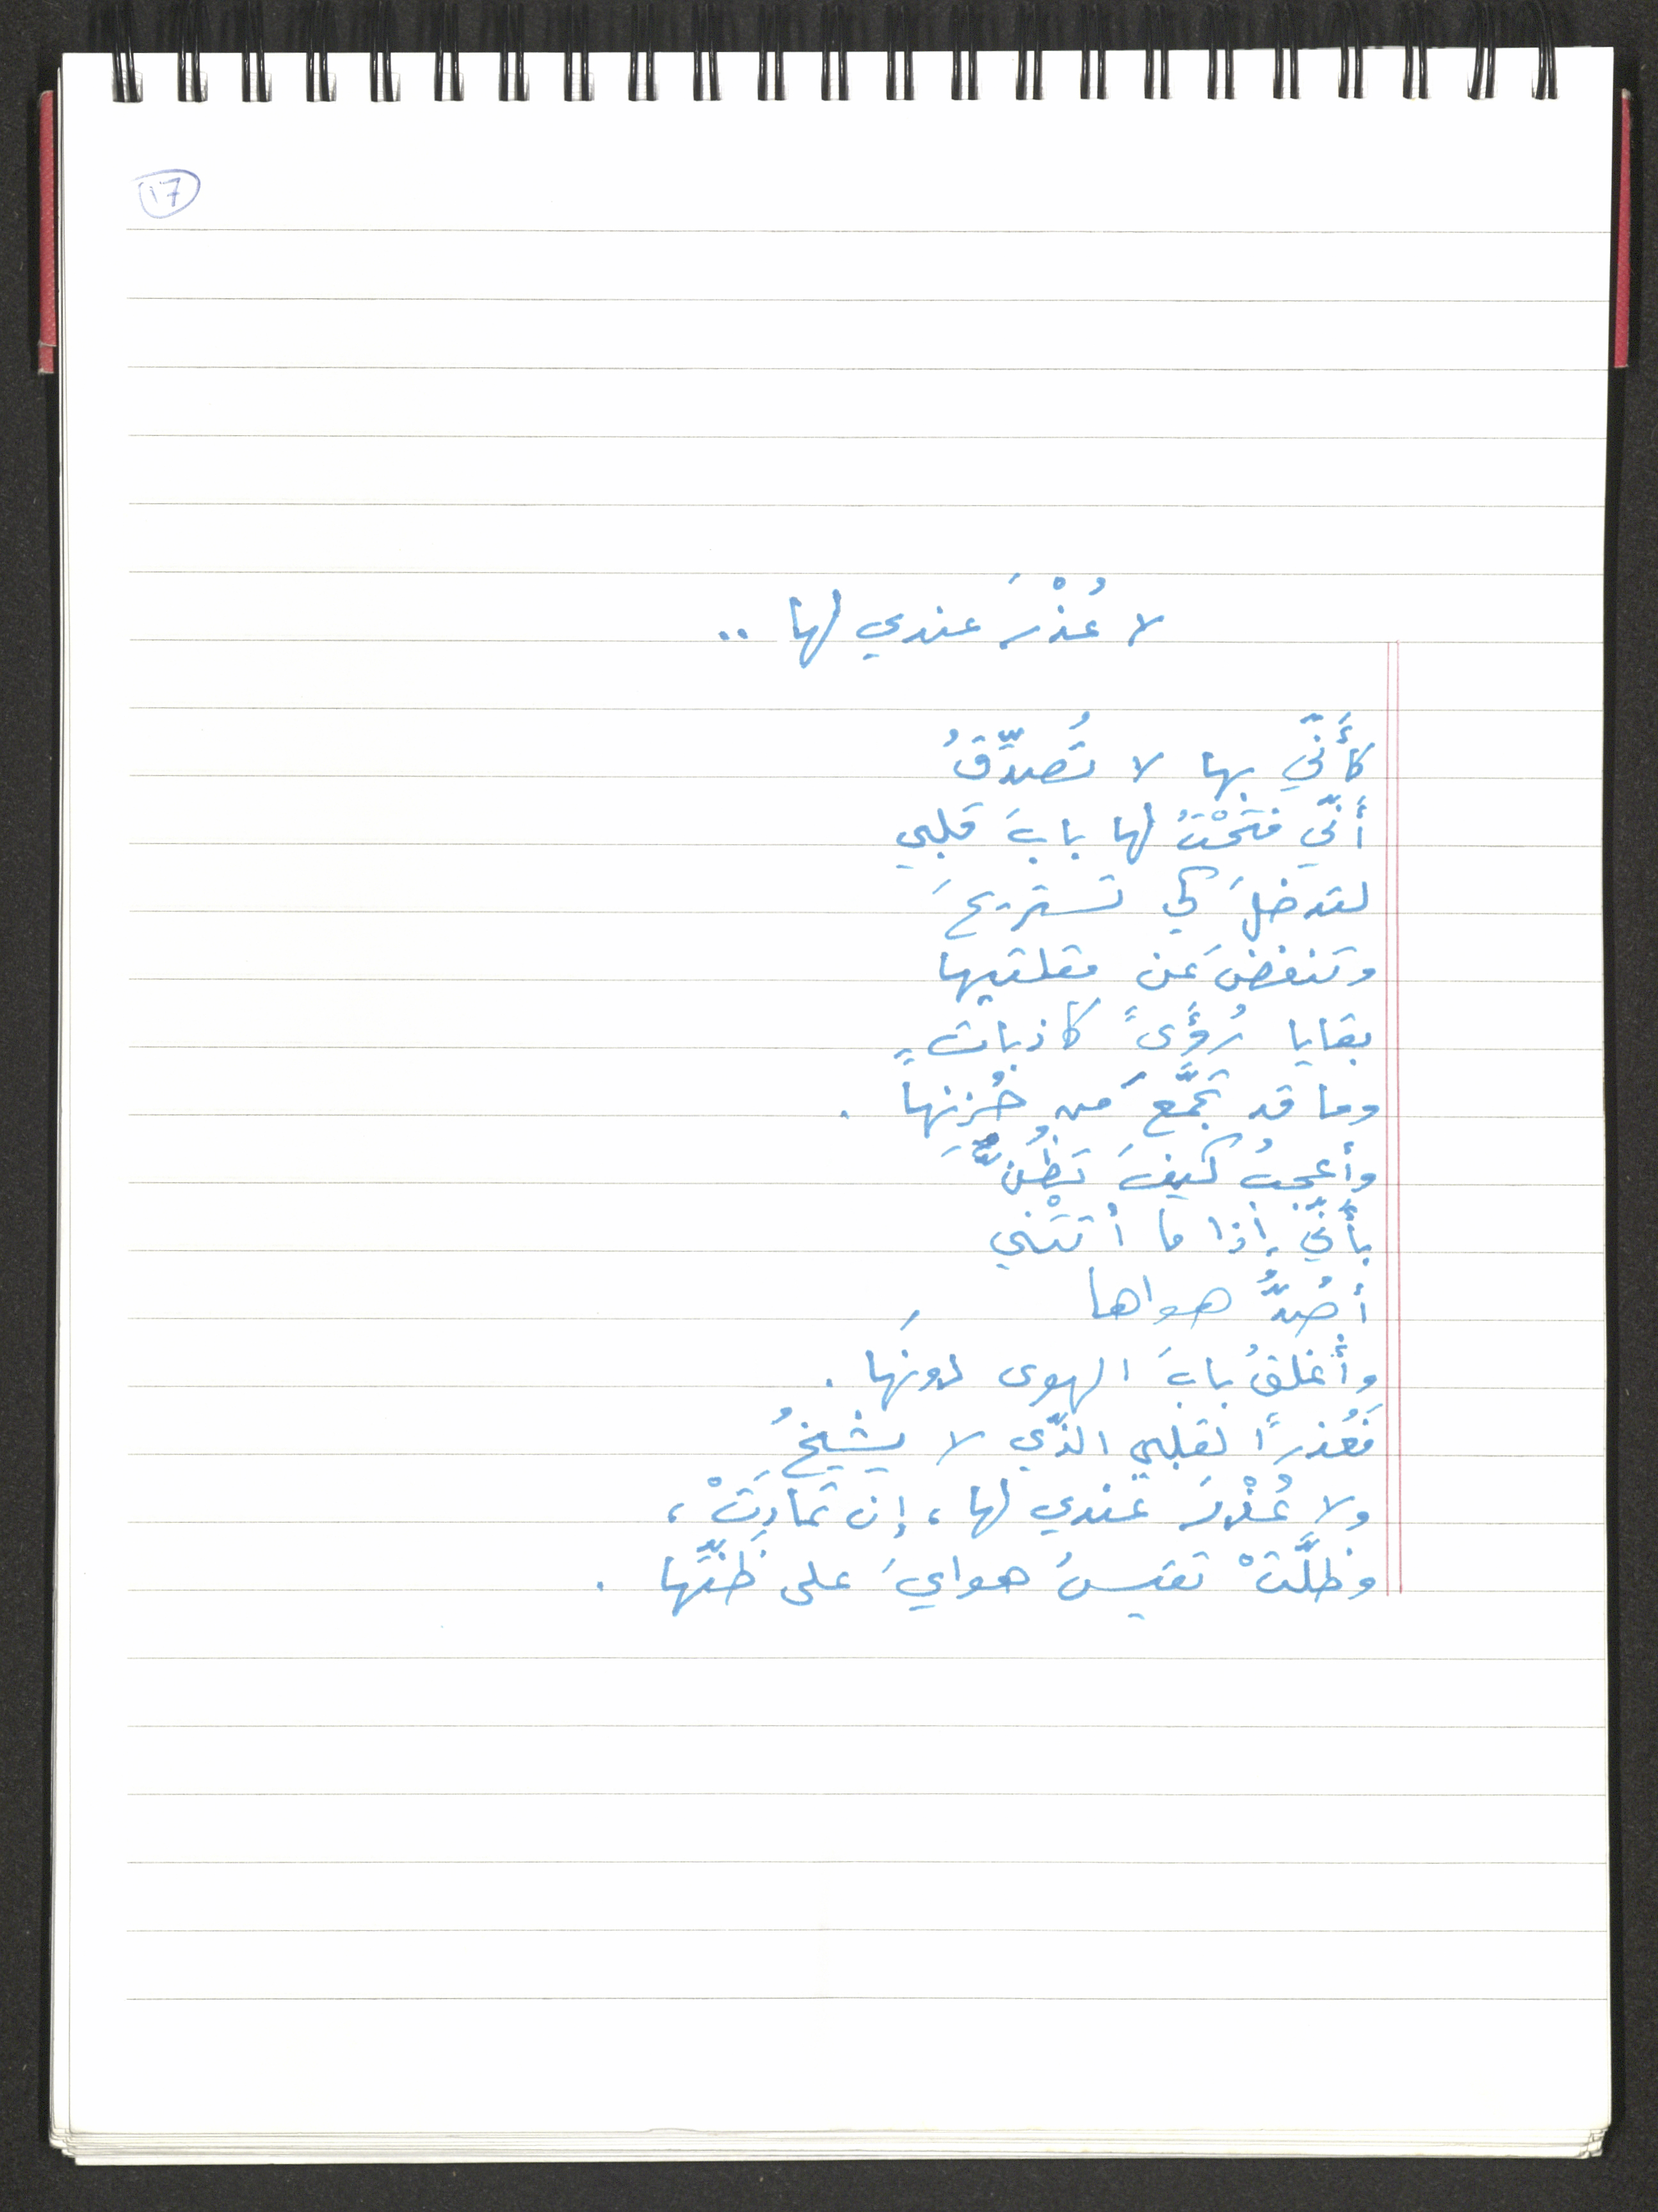 17
لا عُذْرَ عندي لها ..
كأَنّي بها لا تُصدِّقُ
أَنّي فتَحْتُ لها بابَ قلبي
لتدخلَ كي تستريحَ
وتنفضَ عن مقلتيها
بقايا رُؤًىً كاذباتٍ
وما قد تجمَّعَ من حُزنِها .
وأعجبُ كيفَ تَظُنُّ
بأَنّي إذا ما أتتْني
أصُدُّ هواها
وأُغلقُ بابَ الهوى دونَها .
فَعُذرًا لقلبي الذّي لا يشيخُ
ولا عُذْرَ عندي لها ، إن تمادَتْ ،
وظلَّتْ تقيسُ هوايَ على ظَنِّها .